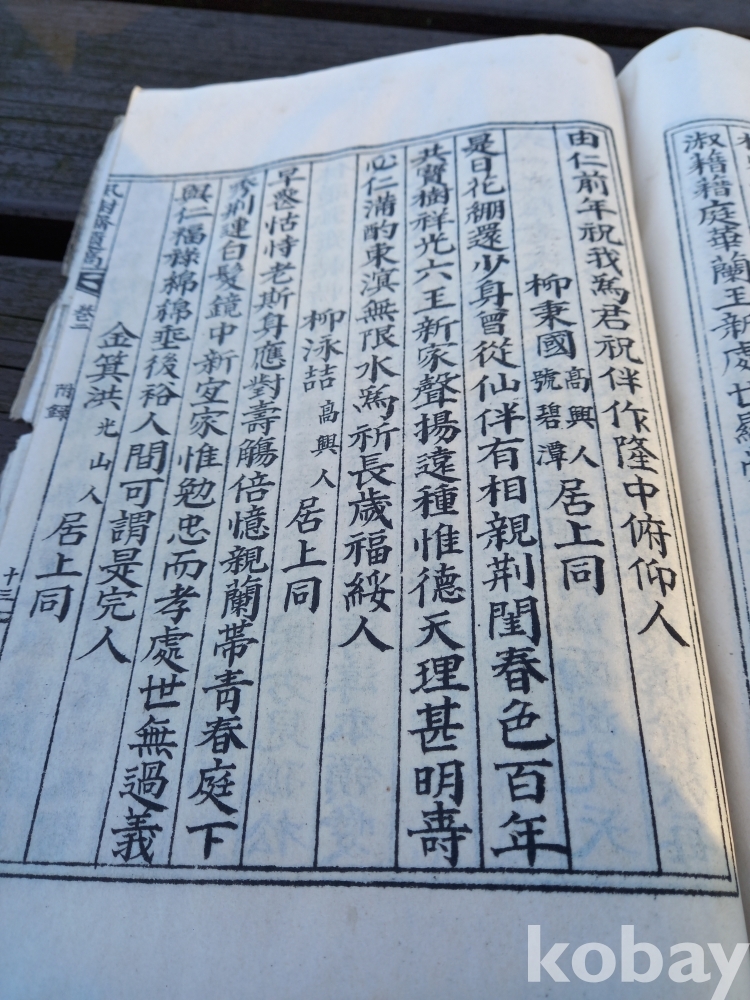 淑藉藉庭華蘭王新處世
由仁前年祝我爲君祝伴作隆中俯仰人
柳秉國 高興人 號碧潭 居上同
是日花棚還少身曾從仙伴有相親荆閨春色百年
共寶樹祥光六王新家聲揚遠種惟德天理甚明壽
必仁滿酌東溟無限水爲祈長歲福綏人
柳泳喆 高興人 居上同
早 怙恃老斯身應對壽觴倍憶親蘭帶青春庭下
荆連白髮鏡中新宜家惟勉忠而孝處世無過義
與仁福祿綿綿垂後裕人間可謂是完人
金箕洪 光山人 居上同
卷二 附錄 十三
kobay